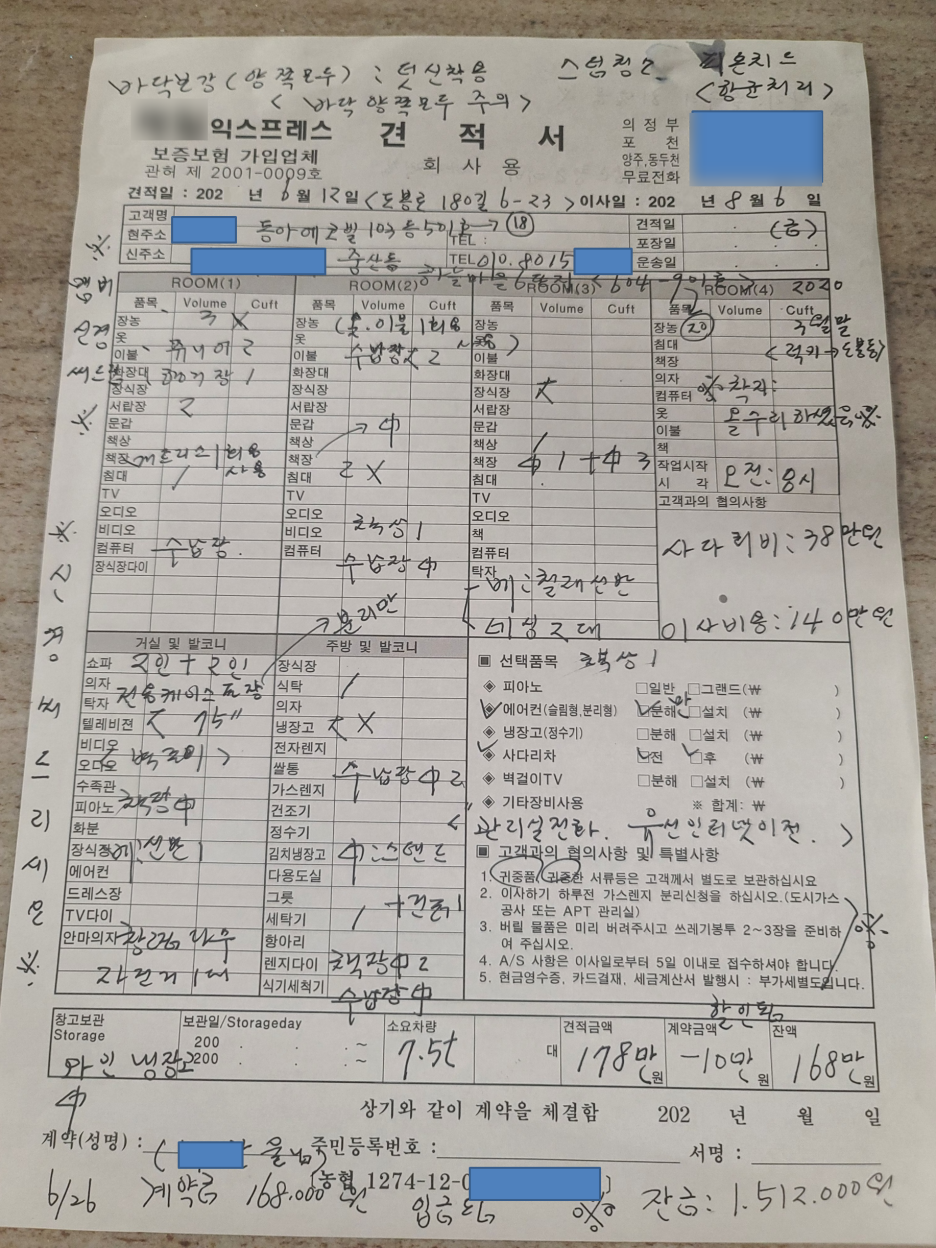 바닥보강(양쪽모두) : 덧신착용
스팀청소 피톤치드
< 바닥 양쪽모두 주의 >
(항균처리)
익스프레스 견 적 서
보증보험 가입업체
회 사 용
관허 제 2001-0009호
의정부
포 천
양주,동두천
무료전화
견적일 : 202 년 6 월 12 일 <도봉로 180길 6-23> 이사일 : 202 년 8 월 6 일
고객명
현주소 동아에코빌 103동 501호 → 18
TEL :
신주소 중산동 하늘마을 6단지 < 604-901호 >
TEL 010.8015
견적일 (금)
포장일
운송일
2020
ROOM(1) ROOM(2) ROOM(3) ROOM(4)
품목 Volume Cuft 품목 Volume Cuft 품목 Volume Cuft 품목 Volume Cuft
장농 3 X
옷
이불 쥬니어 2
화장대
장식장
서랍장 2
문갑
책상
책장 매트리스 1 회용 사용
침대 /
TV
오디오
비디오
컴퓨터 수납장
장식장다이
장농 (옷.이불 1회용
옷
이불 수납장 大 2
화장대
장식장
서랍장
문갑 中
책상
책장
침대 2 X
TV
오디오
비디오
컴퓨터 수납장 中
장농
옷
이불
화장대
장식장 大
서랍장
문갑
책상 /
책장 中 1 + 中 3
침대
TV
오디오
책
컴퓨터
탁자
베:철재선반
장농 20
침대
책장
의자
컴퓨터 ※ 착지:
옷 올수리 하셨음
이불
책
작업시작
시 각 오전: 8시
고객과의 협의사항
사다리비 : 38만원
이사비용 : 140만원
분리만
거실 및 발코니
쇼파 2인 + 2인
의자 전용케이스포장
탁자
텔레비젼 大 75"
비디오
오디오 < 벽걸이 >
수족관
피아노 책장 中
화분
장식장 선반 1
에어컨
드레스장
TV다이
안마의자
자전거 1대
주방 및 발코니
장식장
식탁 /
의자
냉장고 大 X
전자렌지
쌀통 수납장 中 2
가스렌지
건조기
정수기
김치냉장고 中:스탠드
다용도실
그릇
세탁기 / + 건조 1
항아리
렌지다이 책장 中 2
식기세척기 수납장 中
▣ 선택품목
◈ 피아노 □일반 □그랜드(₩ )
◈ 에어컨(슬림형,분리형) □분해 만 □설치 (₩ )
◈ 냉장고(정수기) □분해 □설치 (₩ )
◈ 사다리차 □전 □후 (₩ )
◈ 벽걸이TV □분해 □설치 (₩ )
◈ 기타장비사용 ※ 합계: ₩
< 관리실전화. 유선인터넷이전. >
▣ 고객과의 협의사항 및 특별사항
1. 귀중품, 귀중한 서류등은 고객께서 별도로 보관하십시요
2. 이사하기 하루전 가스렌지 분리신청을 하십시요.(도시가스
공사 또는 APT 관리실)
3. 버릴 물품은 미리 버려주시고 쓰레기봉투 2~3장을 준비하
여 주십시요.
4. A/S 사항은 이사일로부터 5일 이내로 접수하셔야 합니다.
5. 현금영수증, 카드결재, 세금계산서 발행시 : 부가세별도입니다.
할인됨
창고보관
Storage
와인 냉장고
中
보관일/Storageday
200 . . ~
200 . . ~
소요차량
7.5t 대
견적금액
178만 원
계약금액
-10만 원
잔액
168만 원
상기와 같이 계약을 체결함 202 년 월 일
계약(성명) : 주민등록번호 : 서명 :
(농협 1274-12-0
6/26 계약금 168.000 원 입금됨 ※ 잔금: 1.512.000원